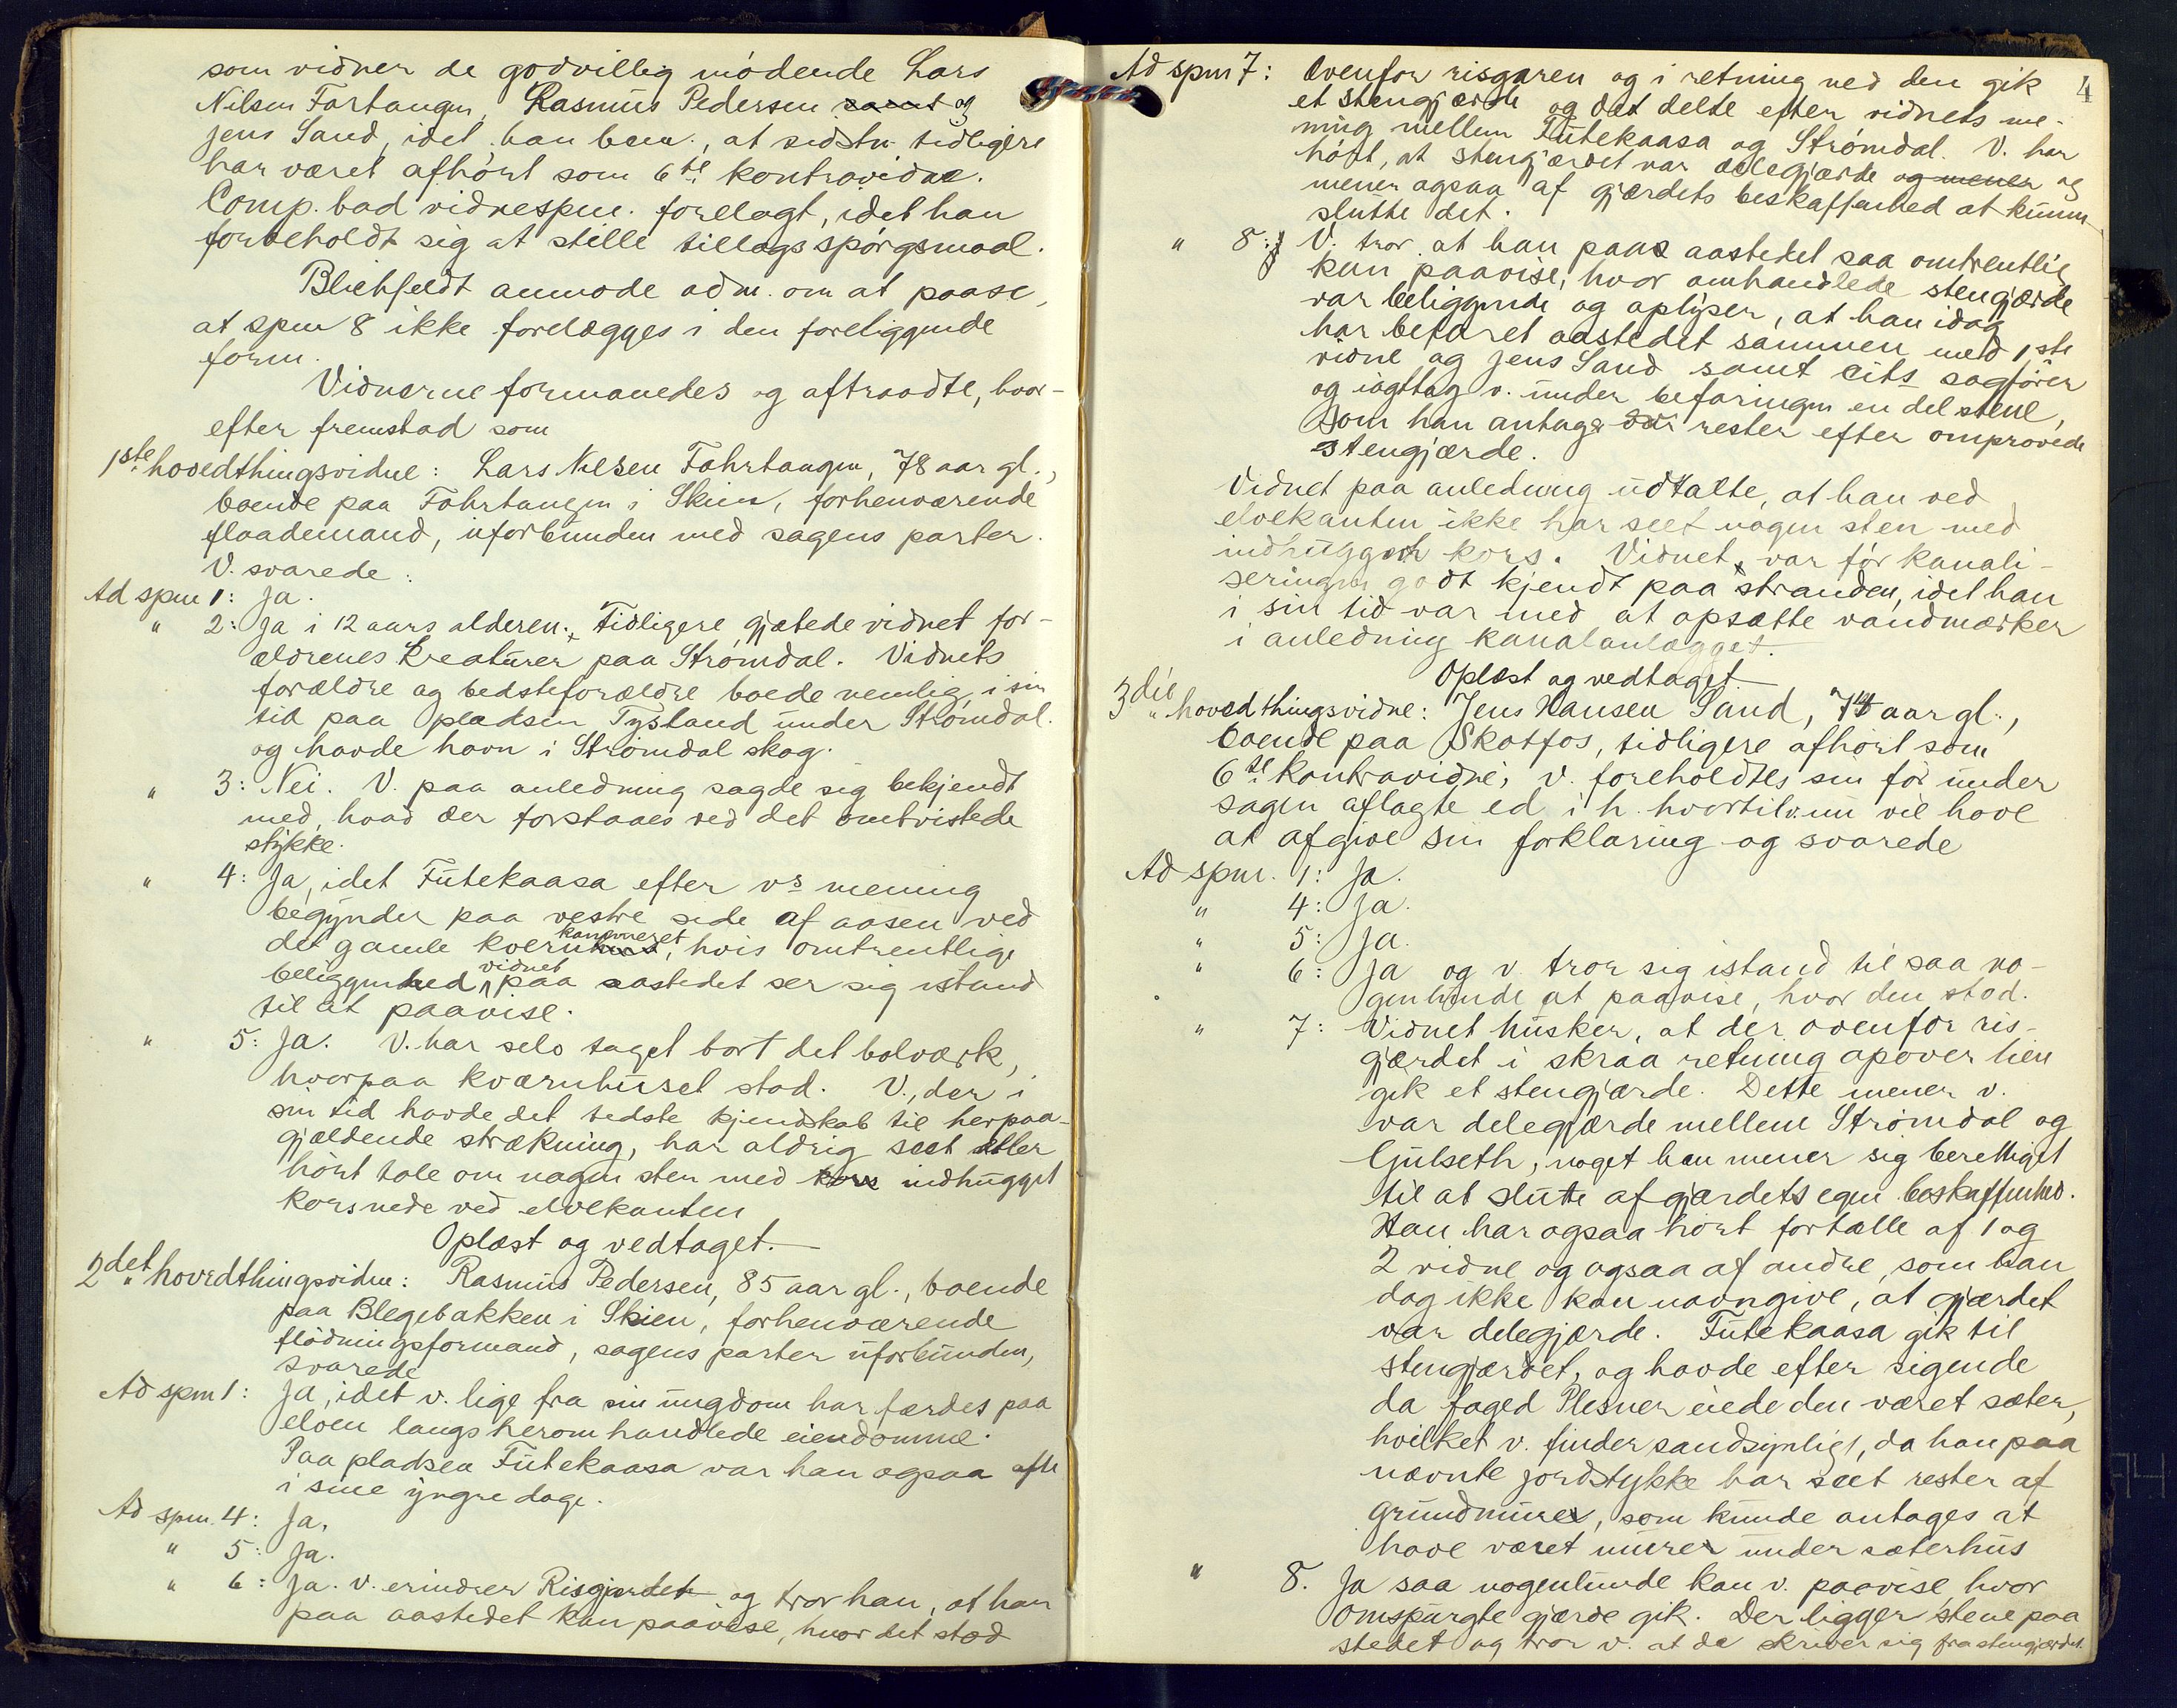 som vidner de godvillig mödende Lars
Nilsen Fartangen, Rasmus Pedersen samt og
Jens Sand, idet han bem., at sidstn. tidligere
har været afhört som 6te kontravidne.
Comp. bad vidnespm. forelagt, idet han
forbeholdt sig at stille tillægsspörgsmaal.
Blichfeldt anmode adm. om at paase,
at spm 8 ikke forelægges i den foreliggende
form.
Vidnerne formanedes og aftraadte, hvor-
efter fremstod som
1ste hovedthingsvidne: Lars Nilsen Fahrtangen, 78 aar gl.,
boende paa Fahrtangen i Skien, forhenværende
flaademand, uforbunden med sagens parter.
V. svarede:
Ad spm 1: Ja.
" 2: Ja i 12 aars alderen. Tidligere gjætede vidnet for-
ældrenes kreaturer paa Strömdal. Vidnets
forældre og bedsteforældre boede nemlig i sin
tid paa pladsen Tysland under Strömdal
og havde havn i Strömdal skog.
" 3: Nei. V. paa anledning sagde sig bekjendt
med, hvad der forstaaes ved det omtvistede
stykke.
" 4: Ja, idet Futekaasa efter vs mening
begynder paa vestre side af aasen ved
det gamle kvernhus, hvis omtrentlige
beliggenhed vidnet paa aastedet ser sig istand
til at paavise.
" 5: Ja. V. har selv taget bort det bolværk,
hvorpaa kværnhuset stod. V., der i
sin tid havde det bedste kjendskab til herpaa-
gjældende strækning, har aldrig seet eller
hört tale om nogen sten med kors indhugget
kors nede ved elvekanten
Oplæst og vedtaget.
2det hovedthingsvidne: Rasmus Pedersen, 85 aar gl., boende
paa Blegebakken i Skien, forhenværende
flödningsformand, sagens parter uforbunden,
svarede
Ad spm 1: Ja, idet v. lige fra sin ungdom har færdes paa
elven langs heromhandlede eiendomme.
Paa pladsen Futekaasa var han ogsaa ofte
i sine yngre dage.
Ad spm. 4: Ja.
" 5: Ja.
" 6: Ja. v. erindrer Risgjerdet og tror han, at han
paa aastedet kan paavise, hvor det stod
4
Ad spm 7: Ovenfor risgaren og i retning ned den gik
et stengjærde og det delte efter vidnets me-
ning mellem Futekaasa og Strömdal. V. har
hört, at stengjærdet var delegjærde og mener og
mener ogsaa af gjærdets beskaffenhed at kunne
slutte det.
" 8: V. tror at han paa aastedet saa omtrentlig
kan paavise, hvor omhandlede stengjærde
var beliggende og oplyser, at han idag
har befaret aastedet sammen med 1ste
vidne og Jens Sand samt cits sagförer
og iagttog v. under befaringen en del stene,
som han antager var rester efter omprövede
stengjærde.
Vidnet paa anledning udtalte, at han ved
elvekanten ikke har seet nogen sten med
indhugget kors. Vidnet var för kanali-
seringen godt kjendt paa stranden, idet han
i sin tid var med at opsætte vandmærker
i anledning kanalanlægget.
Oplæst og vedtaget
3die hovedthingsvidne: Jens Hansen Sand, 74 aar gl.,
boende paa Skotfos, tidligere afhört som
6te kontravidne; v. foreholdtes sin för under
sagen aflagte ed i h. hvortil v. nu vil have
at afgive sin forklaring og svarede
Ad spm. 1: Ja.
" 4: Ja.
" 5: Ja.
" 6: Ja og v. tror sig istand til saa no-
genlunde at paavise, hvor den stod.
" 7: Vidnet husker, at der ovenfor ris-
gjærdet i skraa retning opover lien
gik et stengjærde. Dette mener v.
var delegjærde mellem Strömdal og
Gulseth, noget han mener sig berettiget
til at slutte af gjærdets egen beskaffenhed.
Han har ogsaa hört fortælle af 1 og
2 vidne og ogsaa af andre, som han
dog ikke kan navngive, at gjærdet
var delegjærde. Futekaasa gik til
stengjærdet, og havde efter sigende
da foged Plesner eiede den været sæter,
hvilket v. finder sandsynligt, da han paa
nævnte jordstykke har seet rester af
grundmurer, som kunde antages at
have været murer under sæterhus
" 8. Ja saa nogenlunde kan v. paavise, hvor
omspurgte gjærde gik. Der ligger stene paa
stedet og tror v. at de skriver sig fra stengjærdet.